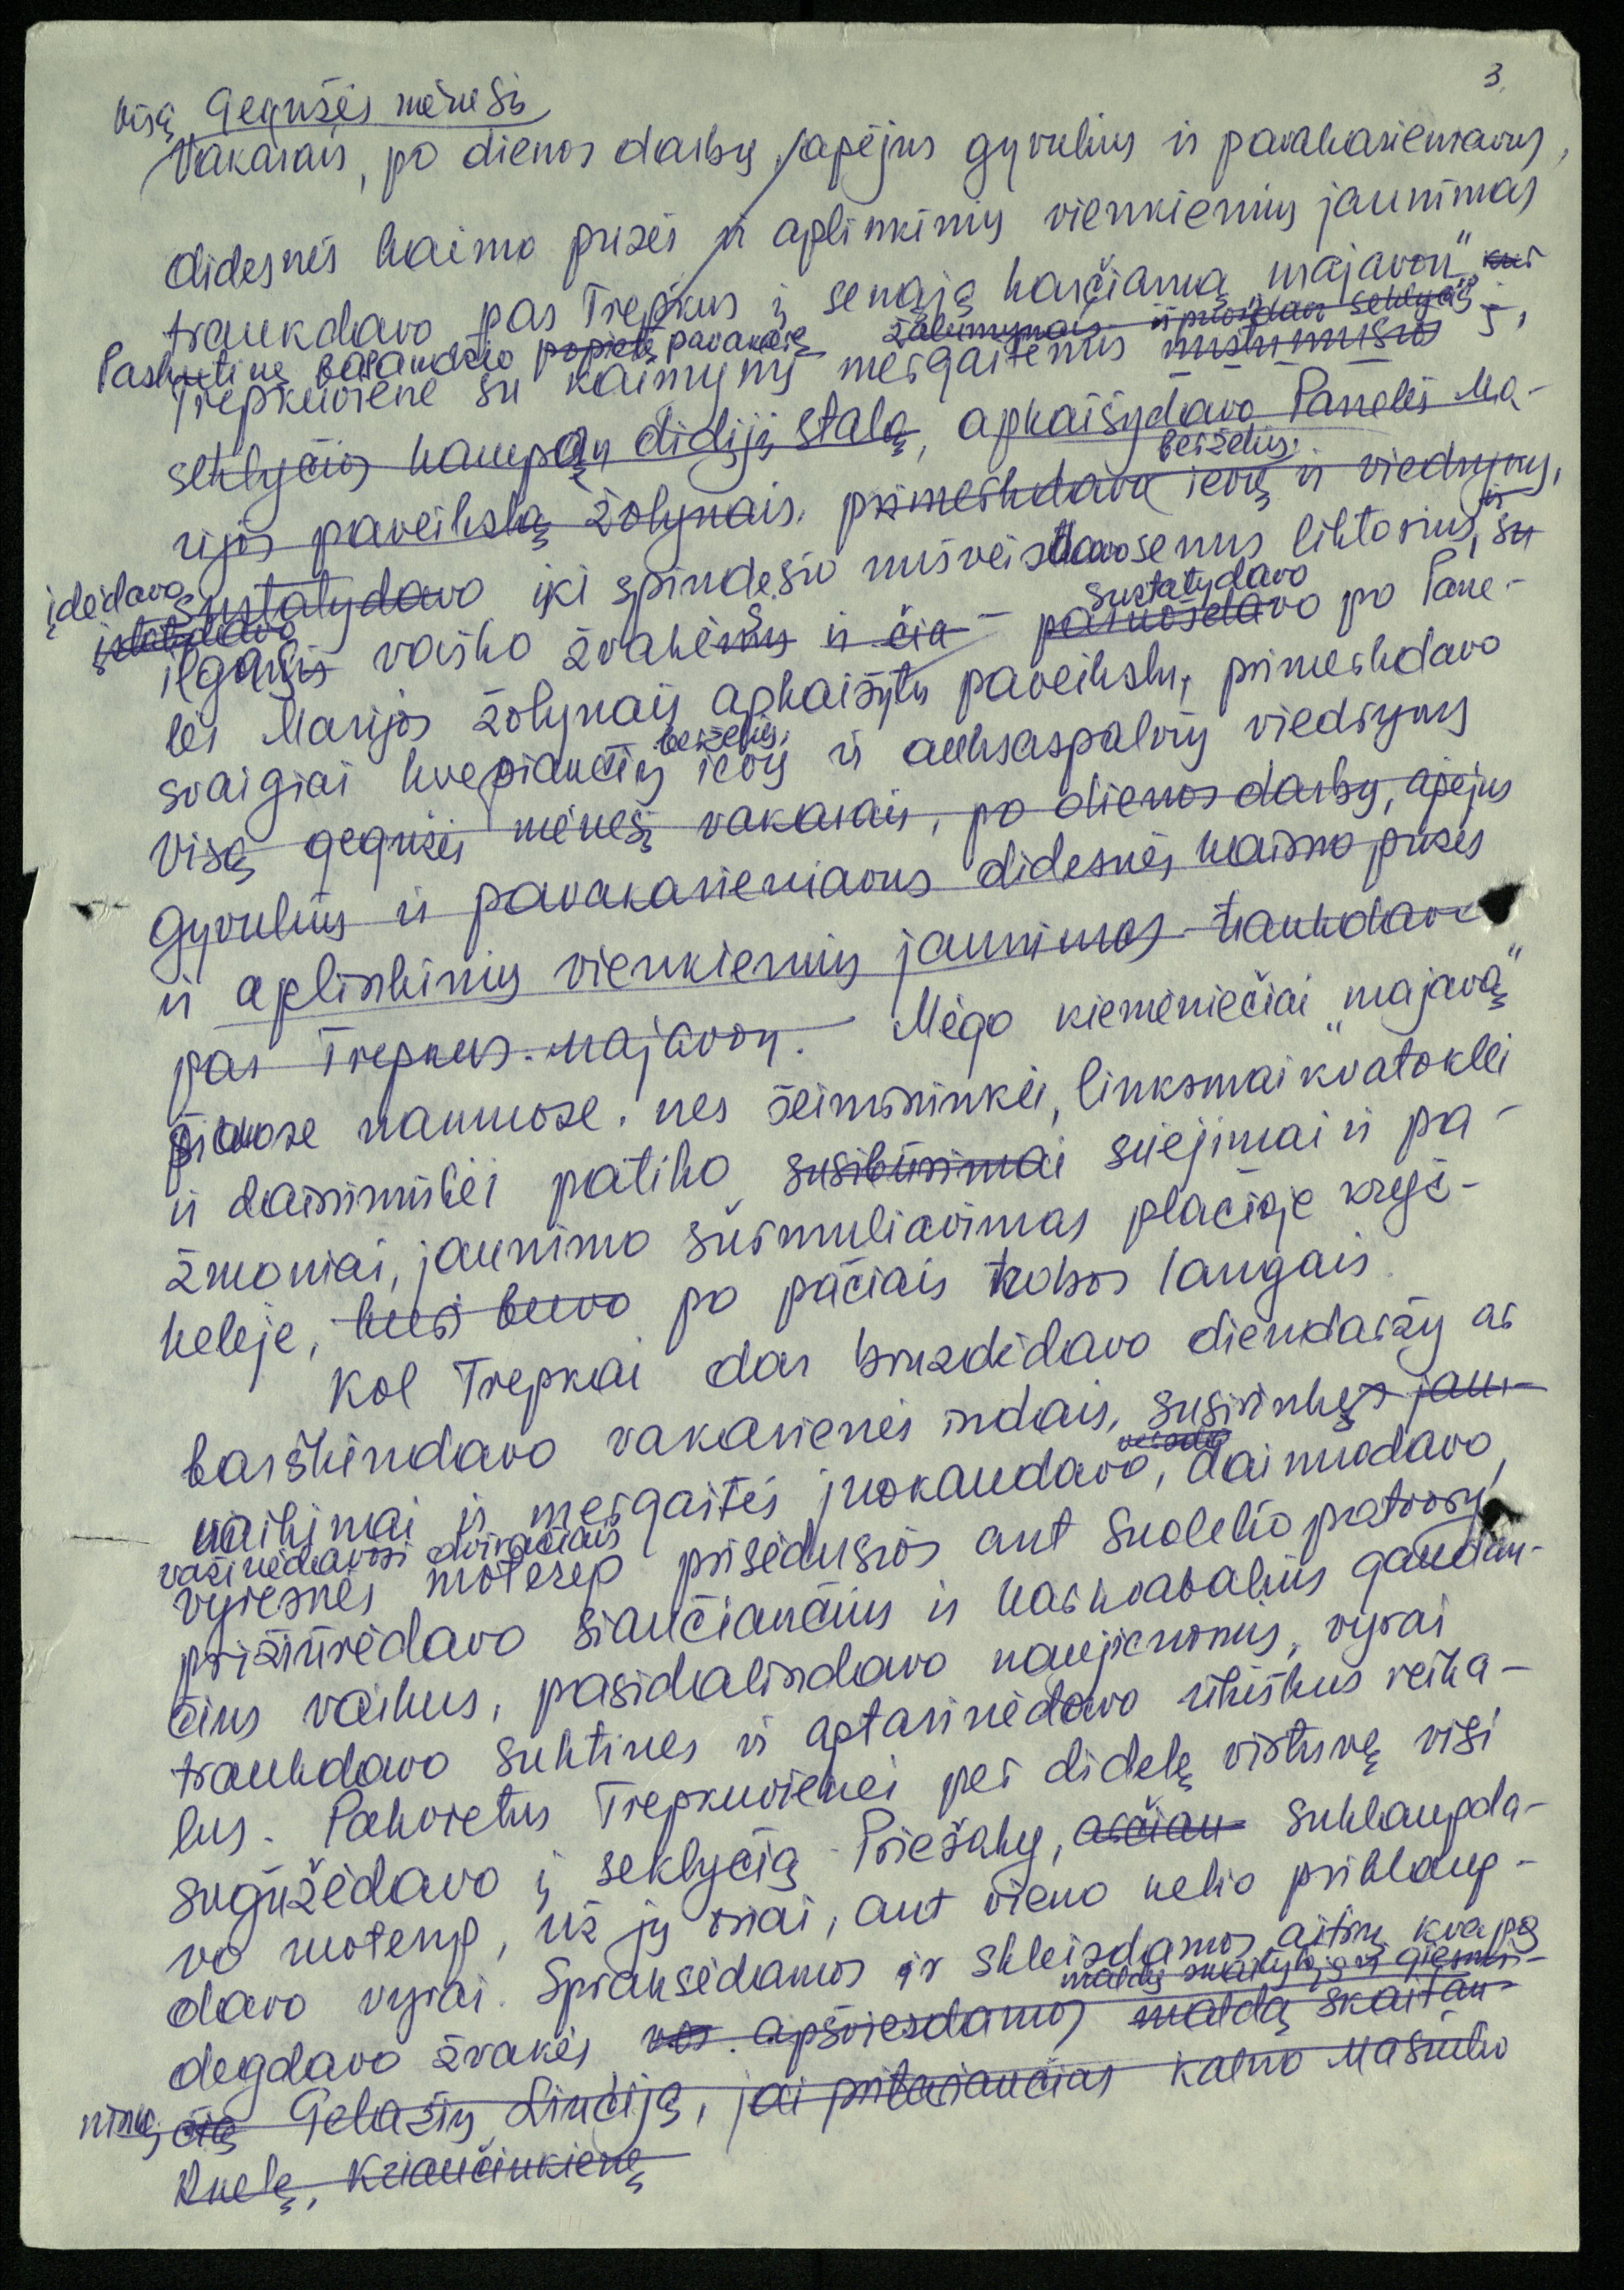 3
visą gegužės mėnesį
Vakarais, po dienos darbų, apėjus gyvulius ir pavakarieniavus,
didesnės kaimo pusės ir aplinkinių vienkiemių jaunimas
traukdavo pas Trepkus į senąją karčiamą „majavon“, kur
Paskutinę balandžio popietę pavakarę žalumynais ir puošdavo seklyčią
Trepkuvienė su kaimynų mergaitėmis
seklyčios kampą, didįjį stalą, apkaišydavo Panelės Ma-
rijos paveikslą žolynais, primerkdavo ievų ir viedrynų,
berželių,
sustatydavo iki spindesio nušveistavo senus liktorius, ir su
įdėdavo
įstatydavo
ilgas vaško žvakėmis ir čia – parnešdavo po Pane-
sustatydavo
lės Marijos žolynais apkaišytu paveikslu, primerkdavo
svaigiai kvepiančių ievų ir auksaspalvių viedrynų
berželių,
visą gegužės mėnesį vakarais, po dienos darbų, apėjus
gyvulius ir pavakarieniavus didesnės kaimo pusės
ir aplinkinių vienkiemių jaunimas traukdavo
pas Trepkus majavon. Mėgo kiemėniečiai „majavą“
šiuose namuose, nes šeimininkei, linksmai kvatoklei
ir dainininkei patiko susibūrimai suėjimai ir pa-
žmoniai, jaunimo šurmuliavimas plačioje kryž-
kelėje, kuri buvo po pačiais trobos langais.
Kol Trepkai dar bruzdėdavo diendaržy ar
barškindavo vakarienės indais, susirinkę jau-
vaikinai ir mergaitės juokaudavo, dainuodavo,
važinėdavosi dviračiais
vyresnės moterep prisėdusios ant suolelio patvory
prižiūrėdavo siaučiančius ir karkvabalius gaudan-
čius vaikus, pasidalindavo naujienomis, vyrai
traukdavo suktines ir aptarinėdavo ūkiškus reika-
lus. Pakvietus Trepkuvienei per didelę virtuvę visi
sugužėdavo į seklyčią. Priešaky, arčiau suklaupda-
vo moterys, už jų msiai, ant vieno kelio priklaup-
davo vyrai. Spragsėdamos ir skleisdamos aitrų kvapą
degdavo žvakės vos apšviesdamos maldą skaitan-
maldų skaitytoją ir giesmi-
ninkę čią Gelažių Liuciją, jai pritariančias kalno Mašiulio
Anelę, Kriaučiukienę